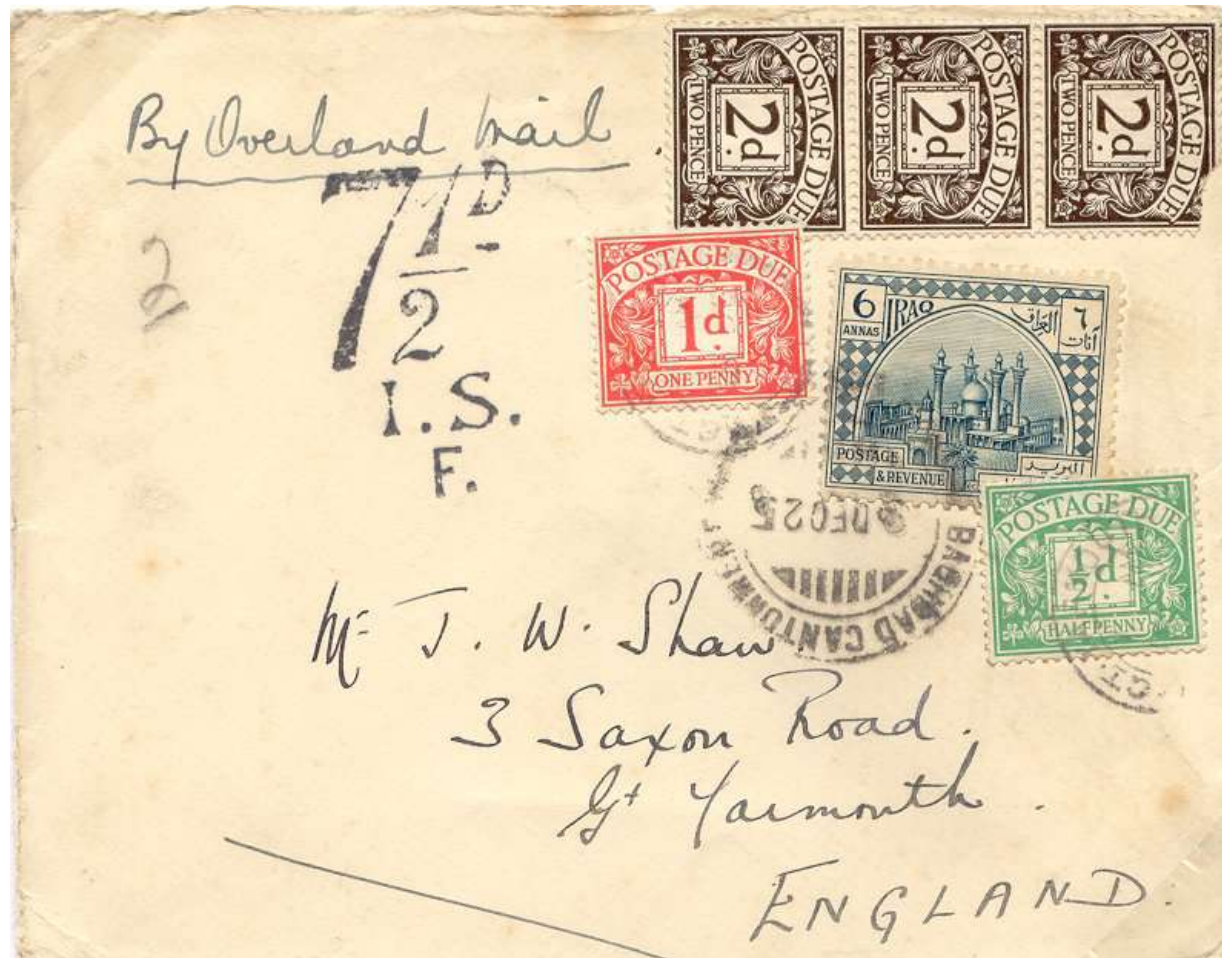 By Overland Mail.
7 1/2 D
I.S.
F.
2
POSTAGE DUE
2d.
TWO PENCE
POSTAGE DUE
2d.
TWO PENCE
POSTAGE DUE
2d.
TWO PENCE
POSTAGE DUE
1d.
ONE PENNY
6 IRAQ العراق ٦
ANNAS آنات
POSTAGE البريد
& REVENUE
POSTAGE DUE
1/2d.
HALFPENNY
BAGHDAD CANTONMEN
DEC 25
Mr J. W. Shaw
3 Saxon Road.
Gt Yarmouth.
ENGLAND.